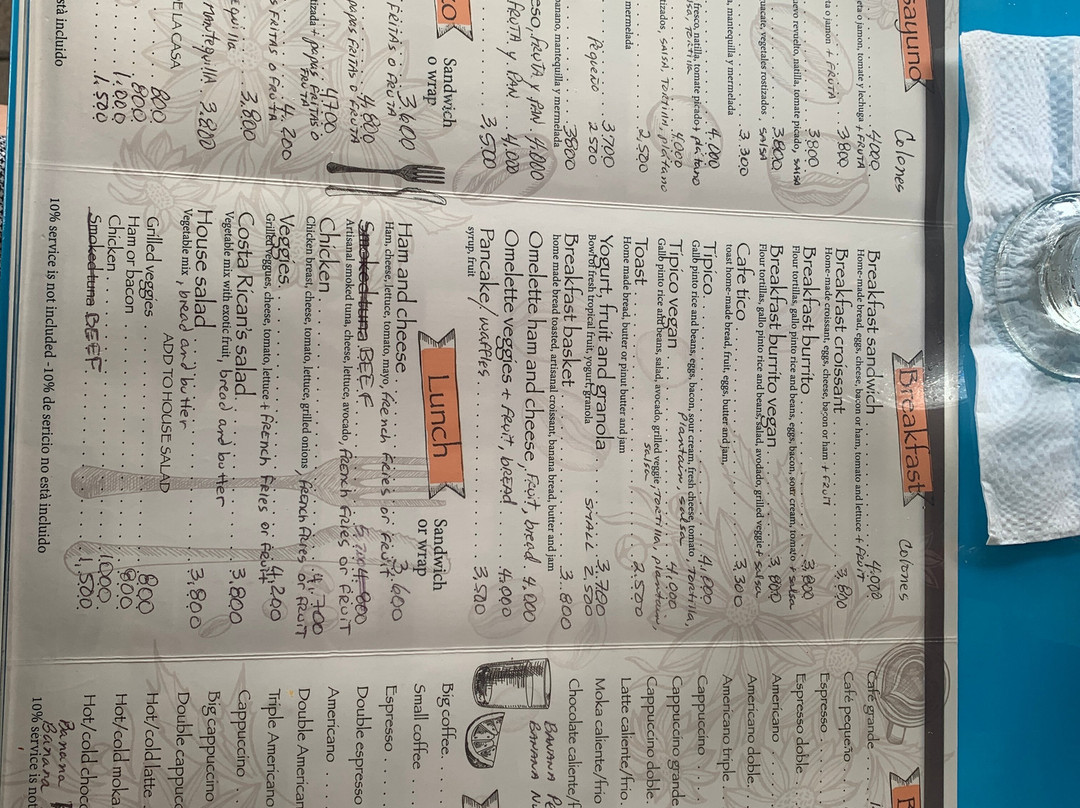 sayuno
Colones
4,000
eta o jamon, tomate y lechuga + FRUTA
3,800
ta o jamon + FRUTA
3,800
uevo revuelto, natilla, tomate picado, SALSA
3,800
uacate, vegetales rostizados SALSA
3,300
a, mantequilla y mermelada
4,000
fresco, natilla, tomate picado + plátano
4,000
tizados, SALSA TORTILLA, plátano
2,500
mermelada
3,700
Pequeño 2,500
3,800
banano, mantequilla y mermelada
eso, FRUTA y PAN 4,000
FRUTA y PAN 4,000
3,500
Sandwich
o wrap
3,600
FRITAS O FRUTA
4,800
papas FRITAS O FRUTA
4,700
tizada + papas FRITAS o FRUTA
4,200
S FRITAS O FRUTA
3,800
Mantequilla 3,800
E LA CASA
800
800
1,000
1,500
està incluido
Breakfast
Colones
Breakfast sandwich 4,000
Home-made bread, eggs, cheese, bacon or ham, tomato and lettuce + FRUIT
Breakfast croissant 3,800
Home-made croissant, eggs, cheese, bacon or ham + FRUIT
Breakfast burrito 3,800
Flour tortillas, gallo pinto rice and beans, eggs, bacon, sour cream, tomato + salsa
Breakfast burrito vegan 3,800
Flour tortillas, gallo pinto rice and beans, salad, avodado, grilled veggie + salsa
Cafe tico 3,300
toast home-made bread, fruit, eggs, butter and jam,
Tipico 4,000
Gallo pinto rice and beans, eggs, bacon, sour cream, fresh cheese, tomato, Tortilla,
Plantain, salsa
Tipico vegan 4,000
Gallo pinto rice and beans, salad, avocado, grilled veggie TORTILLA, plantain,
salsa
Toast 2,500
Home made bread, butter or pinut butter and jam
Yogurt, fruit and granola 3,700
Bowl of fresh tropical fruit, yogurt, granola SMALL 2,500
Breakfast basket 3,800
home made bread toasted, artisanal croissant, banana bread, butter and jam
Omelette ham and cheese, Fruit, bread 4,000
Omelette veggies + Fruit, BREAD 4,000
Pancake/waffles 3,500
syrup, fruit
Lunch
Sandwich
or wrap
Ham and cheese 3,600
Ham, cheese, lettuce, tomato, mayo, french fries or fruit
Smoked tuna BEEF
Artisanal smoked tuna, cheese, lettuce, avocado, FRENCH FRIES OR FRUIT
Chicken 4,700
Chicken breast, cheese, tomato, lettuce, grilled onions, french fries or FRUIT
Veggies 4,200
Grilled veggues, cheese, tomato, lettuce + french fries or fruit
Costa Rican's salad 3,800
Vegetable mix with exotic fruit, bread and butter
House salad 3,800
Vegetable mix, bread and butter
ADD TO HOUSE SALAD
Grilled veggies 800
Ham or bacon 800
Chicken 1,000
Smoked tuna BEEF 1,500
10% service is not included -10% de sericio no està incluido
B
Café grande
Café pequeño
Espresso
Espresso doble
Americano
Americano doble
Americano triple
Cappuccino
Cappuccino grande
Cappuccino doble
Latte caliente/frio
Moka caliente/frio
Chocolate caliente/f
BANANA
BANANA
Big coffee
Small coffee
Espresso
Double espresso
Americano
Double American
Triple Americano
Cappuccino
Big cappuccino
Double cappuc
Hot/cold latte
Hot/cold moka
Hot/cold choc
Banana
Banana
10% service is not